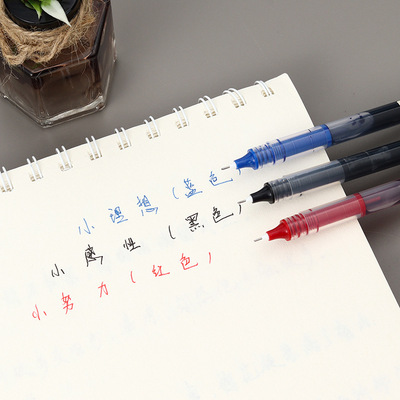 小理想（蓝色）
小感性（黑色）
小努力（红色）